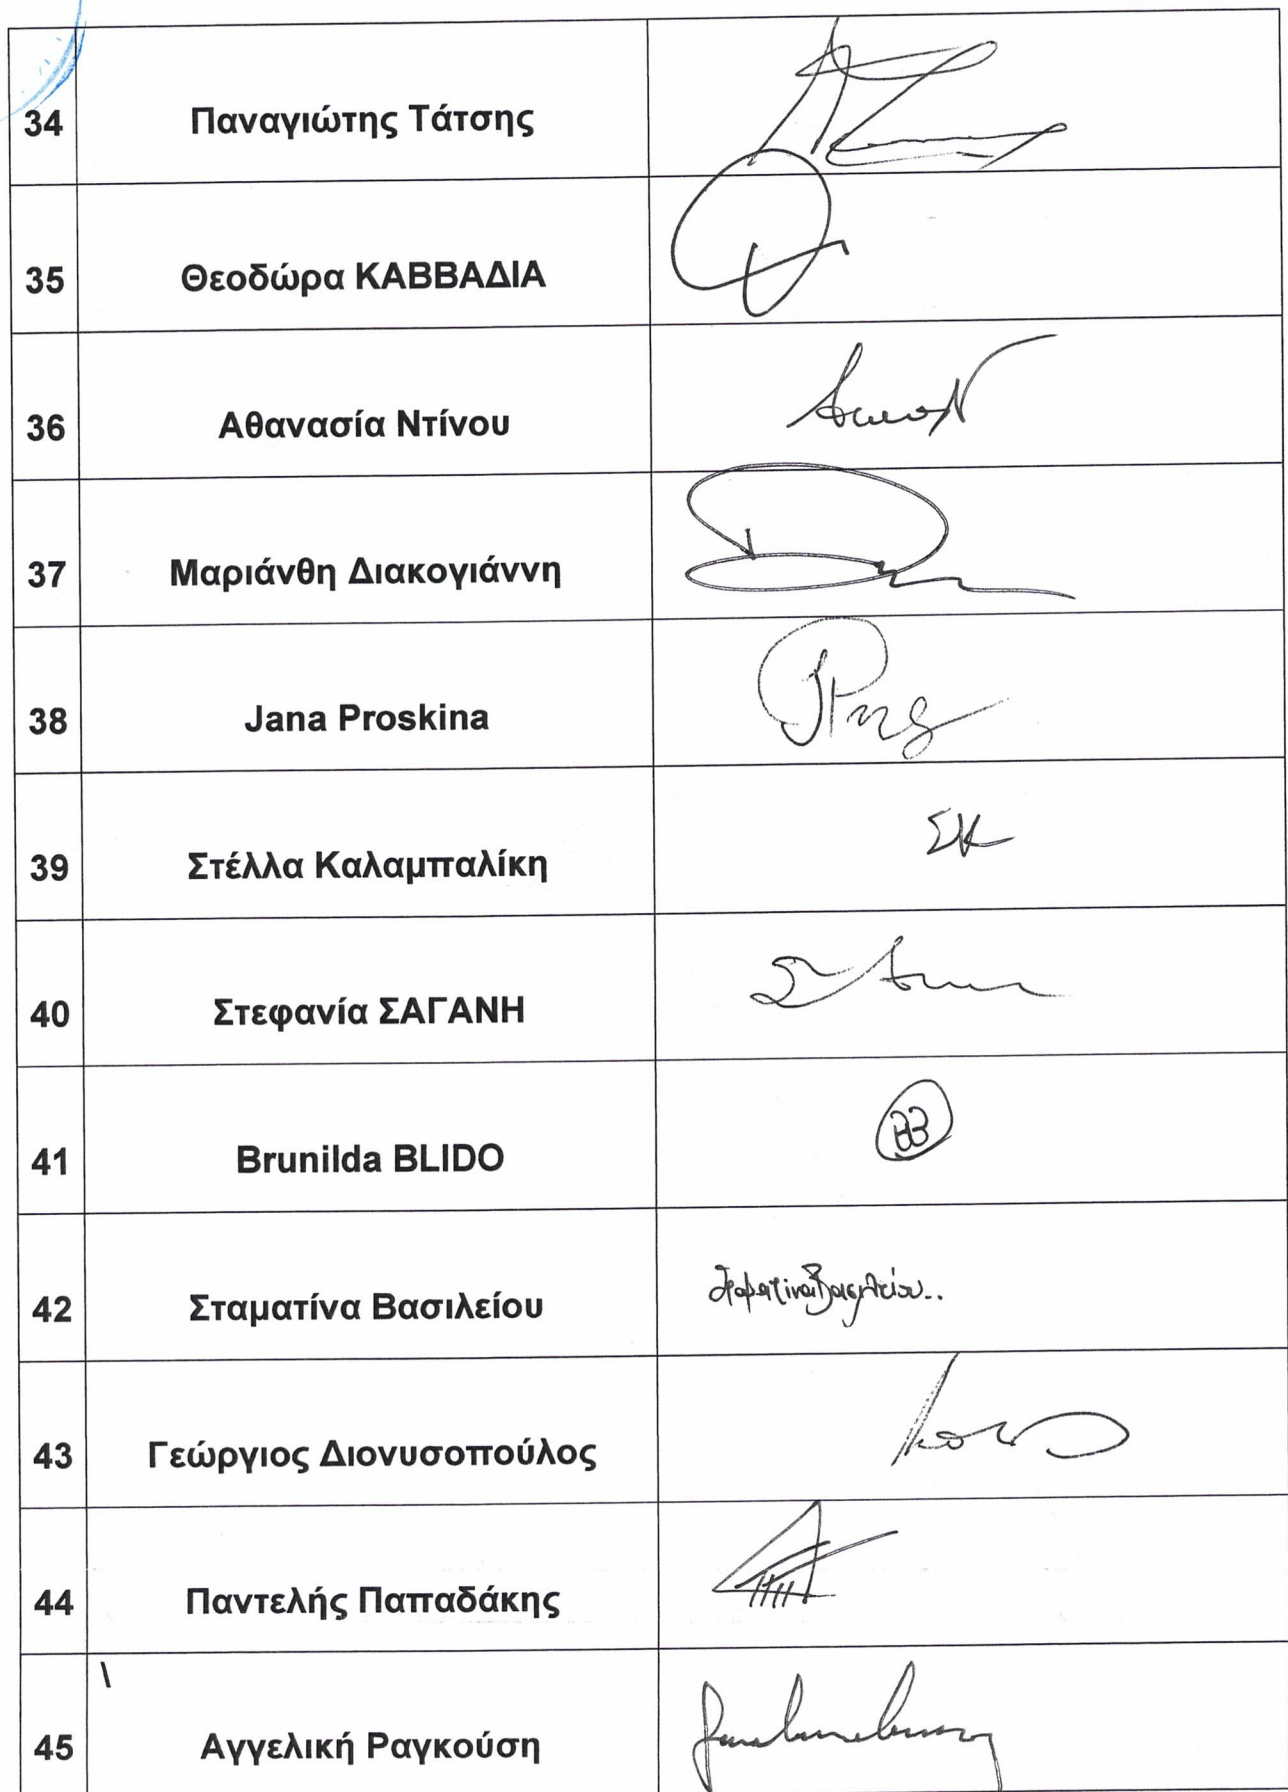 34 Παναγιώτης Τάτσης
35 Θεοδώρα ΚΑΒΒΑΔΙΑ
36 Αθανασία Ντίνου
37 Μαριάνθη Διακογιάννη
38 Jana Proskina
39 Στέλλα Καλαμπαλίκη ΣΚ
40 Στεφανία ΣΑΓΑΝΗ
41 Brunilda BLIDO BB
42 Σταματίνα Βασιλείου Σταματίνα Βασιλείου..
43 Γεώργιος Διονυσοπούλος
44 Παντελής Παπαδάκης
\
45 Αγγελική Ραγκούση